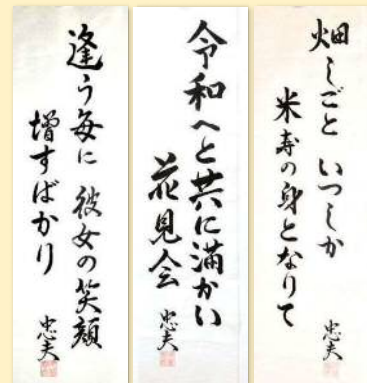 畑しごと いつしか
米寿の身となりて
忠夫
令和へと共に満かい
花見会
忠夫
逢う毎に 彼女の笑顔
増すばかり
忠夫